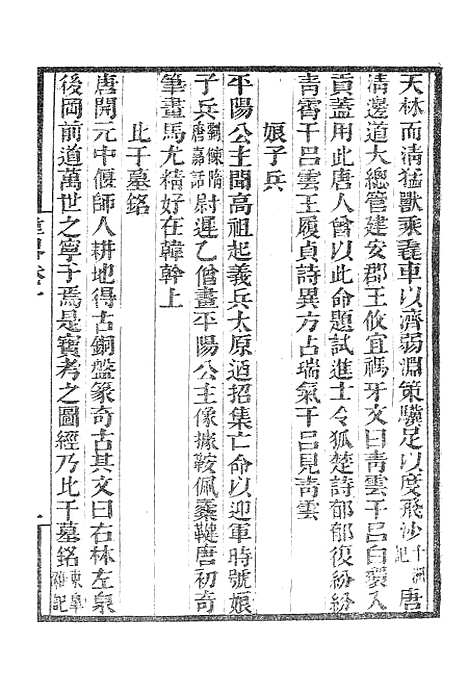 天林而淸猛獸乘毳車以濟弱淵策驥足以度飛沙十洲記唐
淸邊道大總管建安郡王攸宜禡牙文曰靑雲干呂白環入
貢蓋用此唐人曾以此命題試進士令狐楚詩郁郁復紛紛
靑霄干呂雲王履貞詩異方占瑞氣干呂見靑雲
娘子兵
平陽公主聞高祖起義兵太原遒招集亡命以迎軍時號娘
子兵劉餗隋唐嘉話尉遲乙僧畫平陽公主像據鞍佩櫜鞬唐初奇
筆畫馬尤精好在韓幹上
比干墓銘
唐開元中偃師人耕地得古銅盤篆奇古其文曰右林左泉
後岡前道萬世之寧于焉是寳考之圖經乃比干墓銘東臯雜記